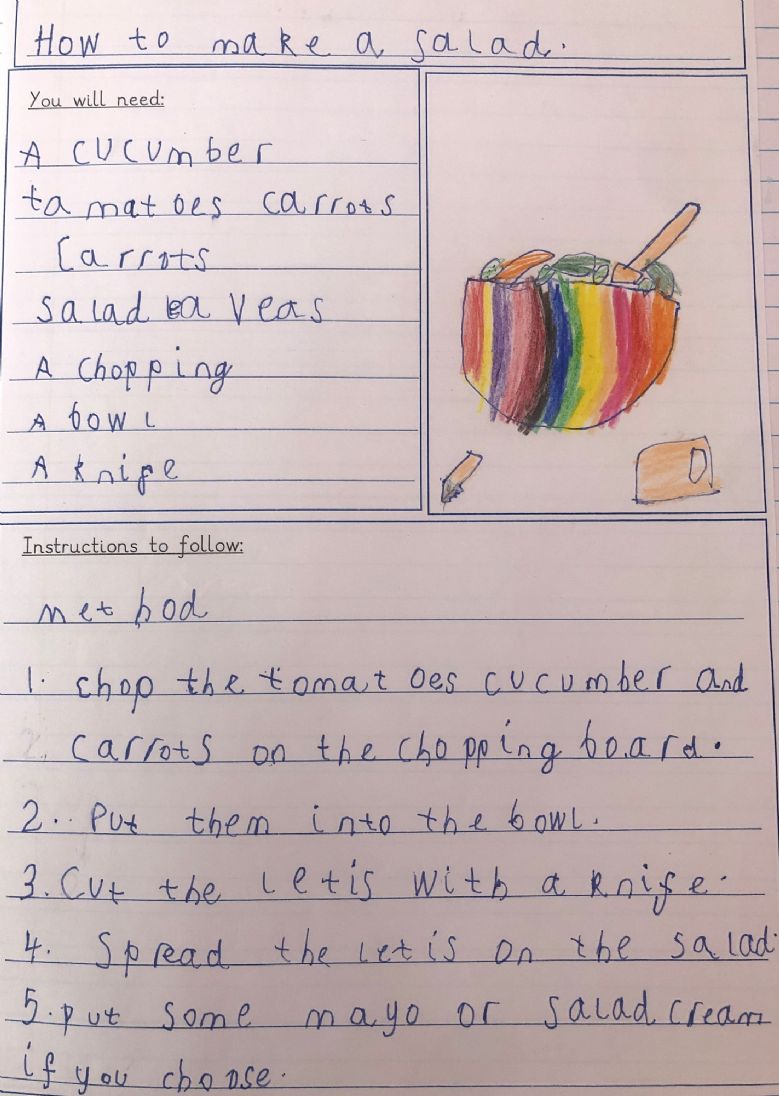 How to make a salad.
You will need:
A cucumber
tamatoes carrots
Carrots
salad leaveas
A chopping
A bowl
A knife
Instructions to follow:
method
1. chop the tomatoes cucumber and
carrots on the chopping board.
2.. Put them into the bowl.
3. Cut the letis with a knife.
4. Spread the letis on the salad.
5. put some mayo or salad cream
if you choose.